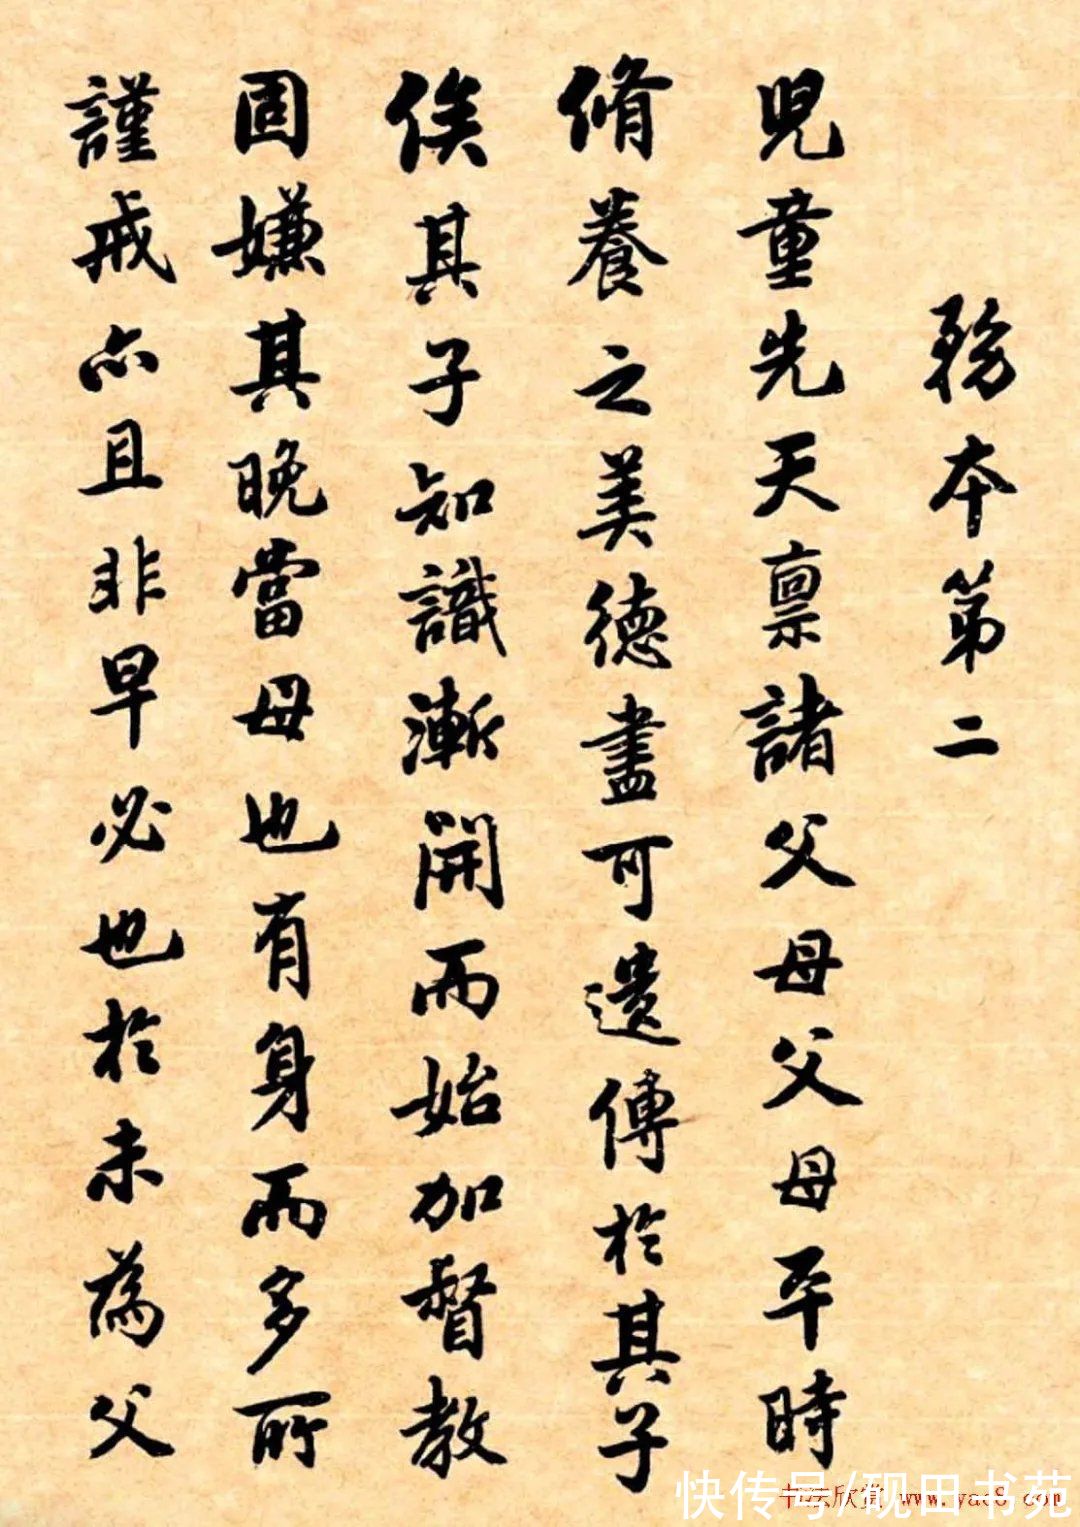 務本第二
兒童先天禀諸父母父母平時
脩養之美德盡可遺傳於其子
俟其子知識漸開而始加督教
固嫌其晚當母也有身而多所
謹戒亦且非早必也於未為父
快传号/砚田书苑
书法欣赏 www.yac8.com